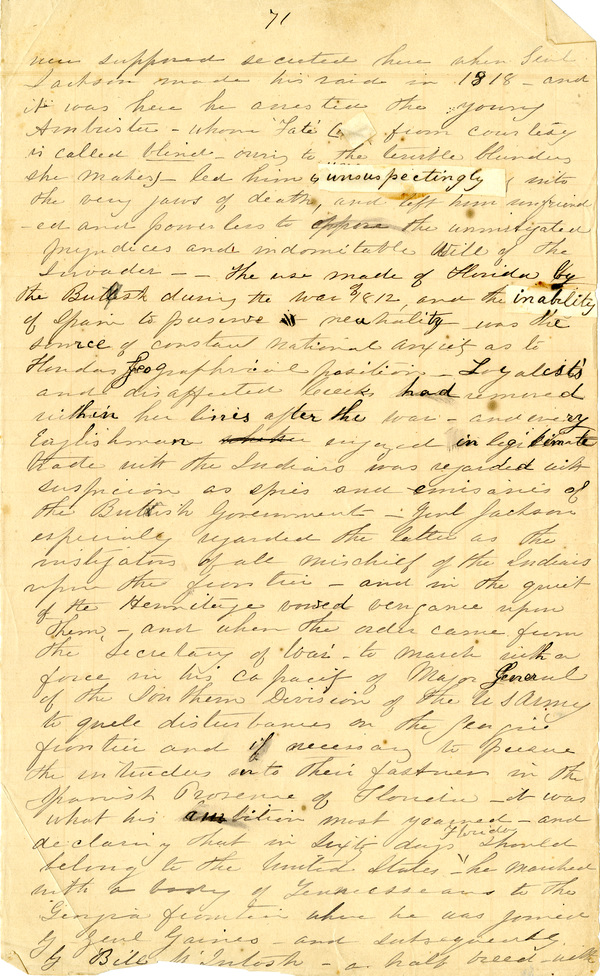 71
were supposed secreted here when Genl
Jackson made his raide in 1818 – and
it was here he arrested the young
Ambrister – whom 'Fate' from courtesy
is called blind – owing to the terrible blunders
she makes – led him unsuspectingly into
the very jaws of death, and left him unfriend
-ed and powerless to oppose the unmitigated
prejudices and indomitable Will of the
Invader – – The use made of Florida by
the British during the War of 1812, and the inability
of Spain to preserve neutrality was the
source of constant national anxiety as to
Floridas Geographical position – Loyalists
and disaffected Creeks had removed
within her lines after the war – and every
Englishman engaged in legitimate
trade with the Indians was regarded with
suspicion as spies and emisaries of
the British Government – Genl Jackson
especially regarded the latter as the
instigators of all mischief of the Indians
upon the frontier – and in the quiet
of the Hermitage vowed vengance upon
them, – and when the order came from
the Secretary of War – to march with a
force in his capacity of Major General
of the Southern Division of the U S Army
to quell disturbances on the Georgia
frontier and if necessary to pursue
the intruders into their fastness in the
Spanish Provense of Florida – it was
what his ambition most yearned – and
declaring that in sixty days Florida should
belong to the United States – he marched
with a body of Tennesseeans to the
Georgia frontier where he was joined
by Genl Gaines – and subsequently
by Bill McIntosh – a half breed – with